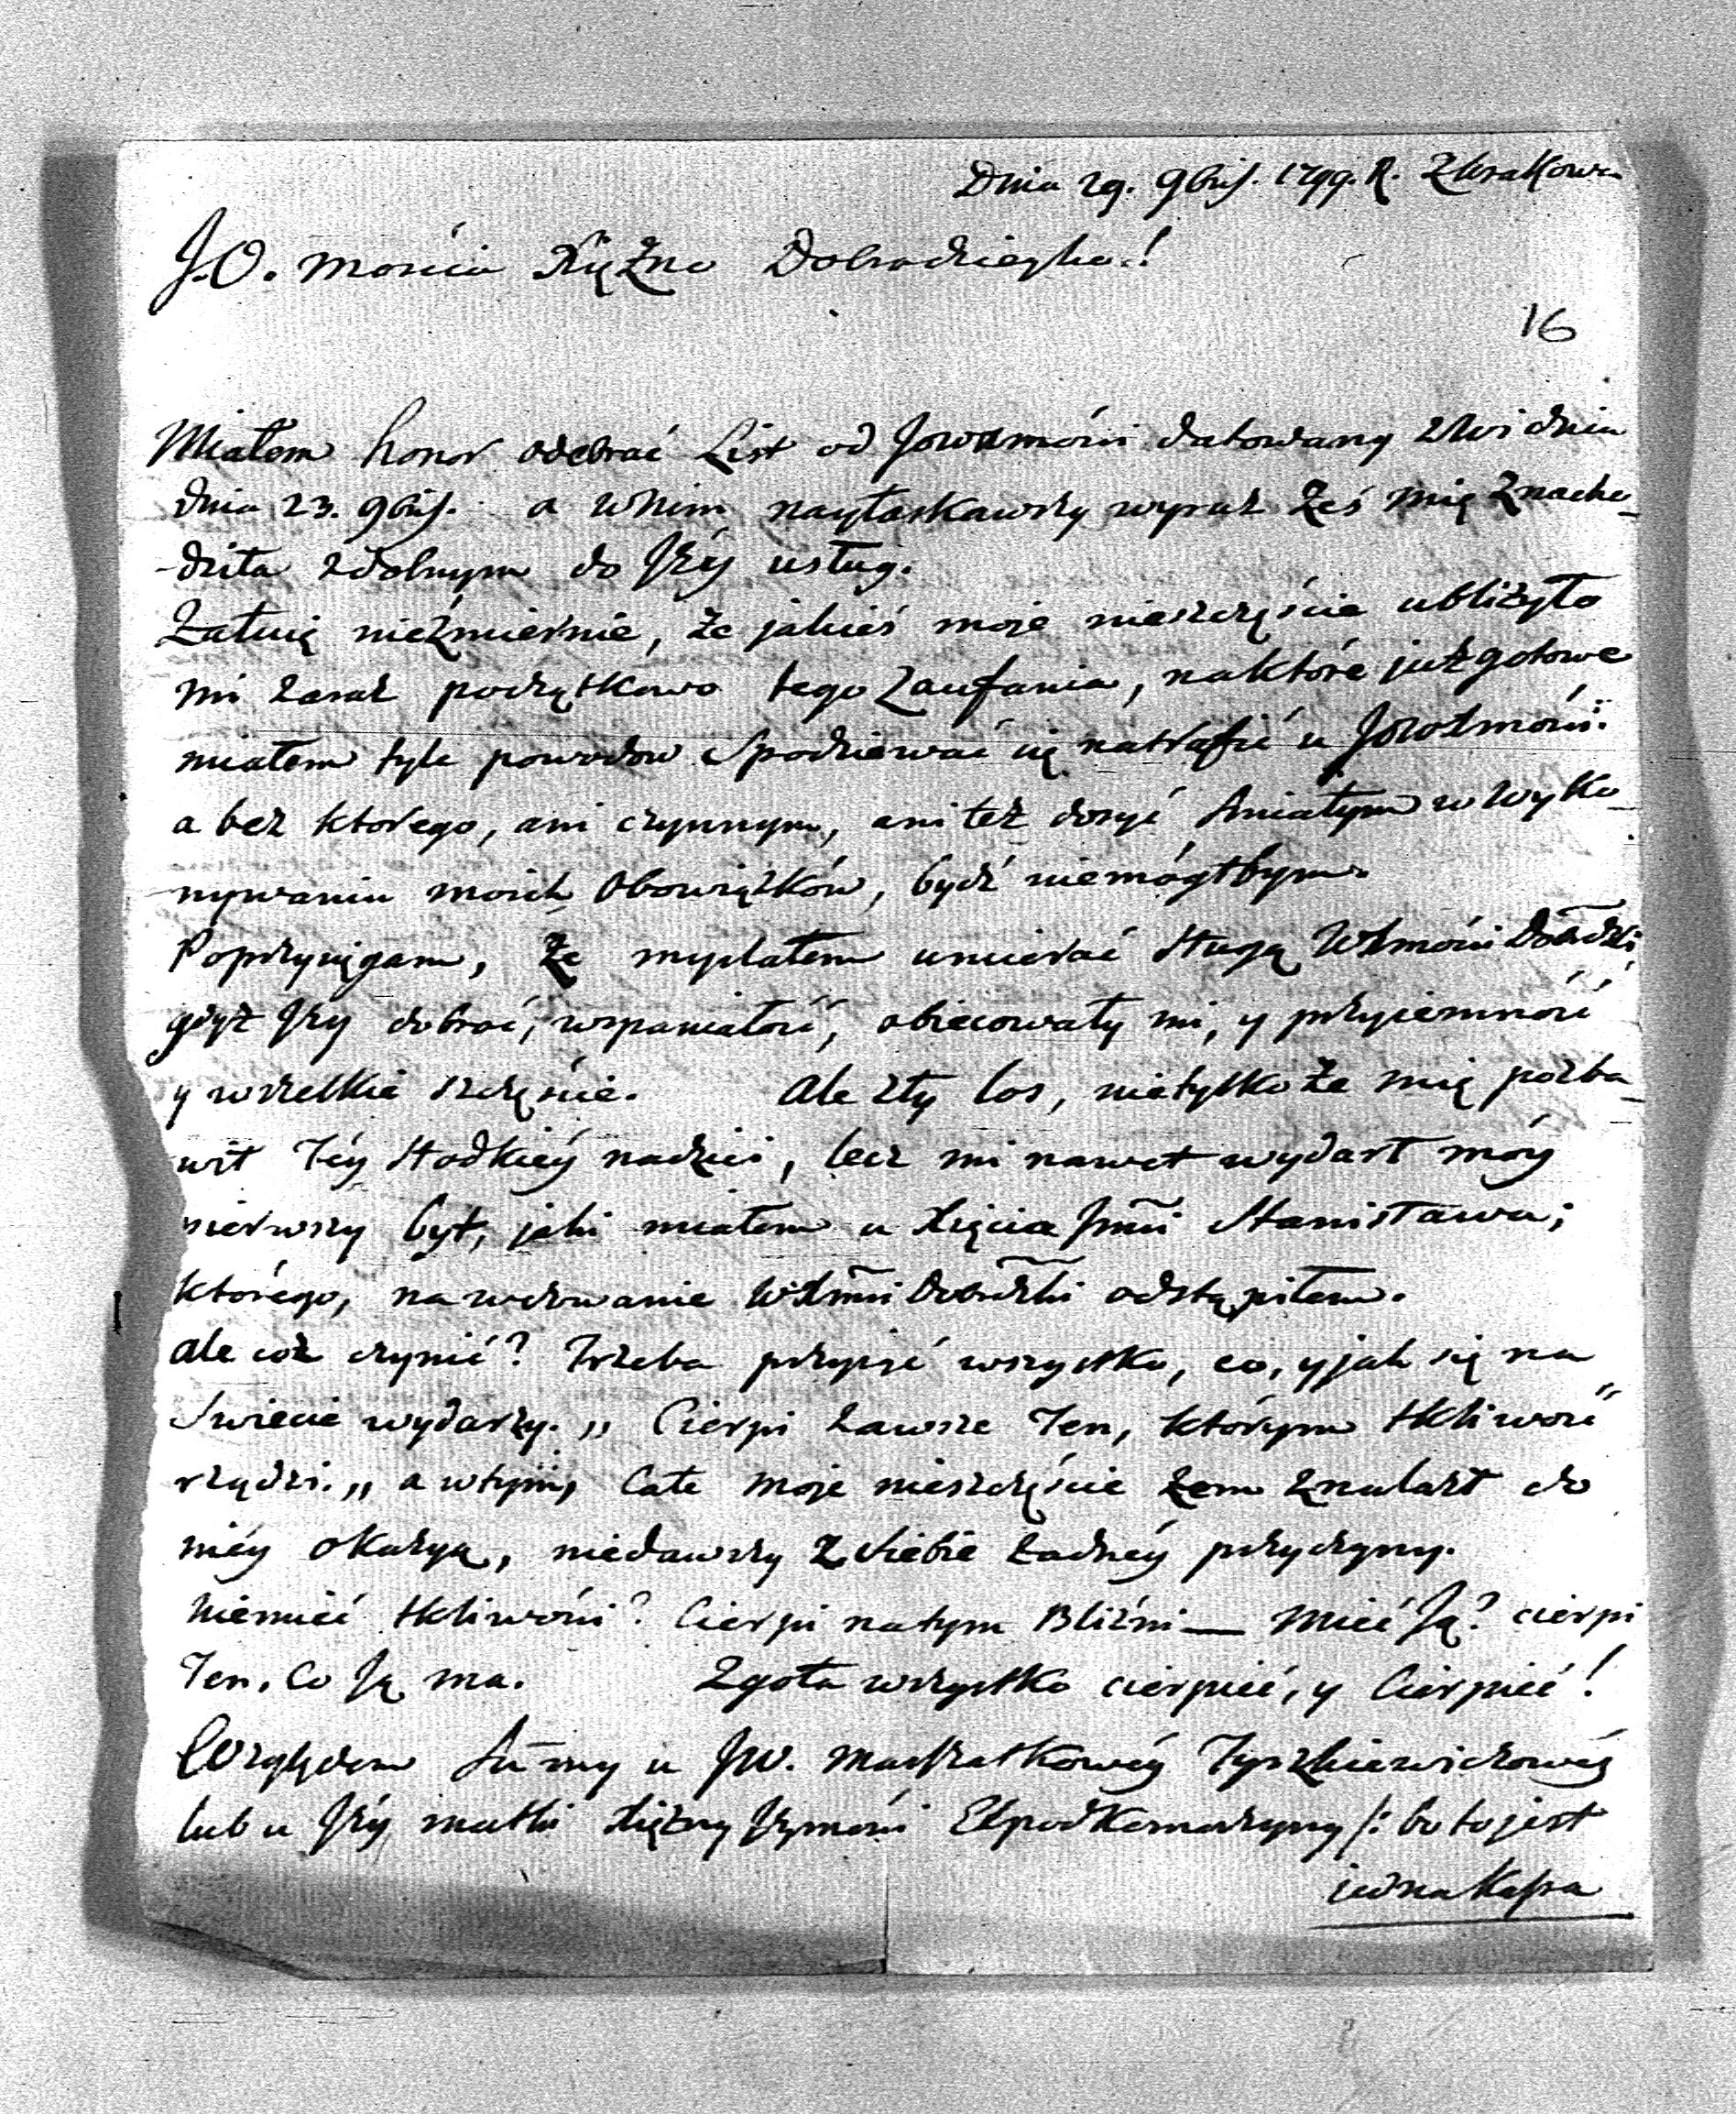 Dnia 29. 9bris. 1799. R. z Krakowa
J.O. Mościa Xiężno Dobrodzieyko!
16
Miałem honor odebrać List od JOWXmości datowany z Widnia
dnia 23. 9bris. a w Nim nayłaskawszy wyraz Żeś mię Znacho-
-dziła zdolnym do Jey usług.
Żałuię nieźmiernie, że jakieś moje nieszczęście ubliżyło
mi zaraz początkowo tego Zaufania, na które już gotowe
miałem tyle powodow Spodziewać się natrafić u JOWXmości:
a bez ktorego, ani czynnym, ani też dosyć śmiałym w wyko-
nywaniu moich Obowiązków, bydź niemógłbym.
Poprzysięgam, że myslałem umierać sługą WXmości Dobrodzki
gdyż Jey dobroć, wspaniałość, obiecowały mi, y przyiemność
y wszelkie szczęście. Ale zły los, nietylko że mię pozba-
wił Téy słodkiéy nadziei, lecz mi nawet wydarł móy
pierwszy byt, jaki miałem u Xięcia Jmci Stanisława;
którego, na wezwanie WXmci Dobrodzki odstąpiłem.
ale coż czynić? Trzeba przyiąć wszystko, co, y jak się na
Swiecie wydarzy. „ Cierpi zawsze Ten, którym tkliwość "
rządzi. „ a w tym, Całe moje nieszczęście żem znalazł do
niéy okazyą, niedawszy z siebie żadnéy przyczyny.
Niemieć tkliwości? Cierpi na tym Bliźni — Mieć Ją? cierpi
Ten, co Ją ma. Zgoła wszystko cierpieć, y Cierpieć!
Względem Summy u JW. Marszałkowéy Tyszkiewiczowéy
lub u Jéy matki Xiężny Jeymości Expodkomorzyny /: bo to jest
jedna Kassa